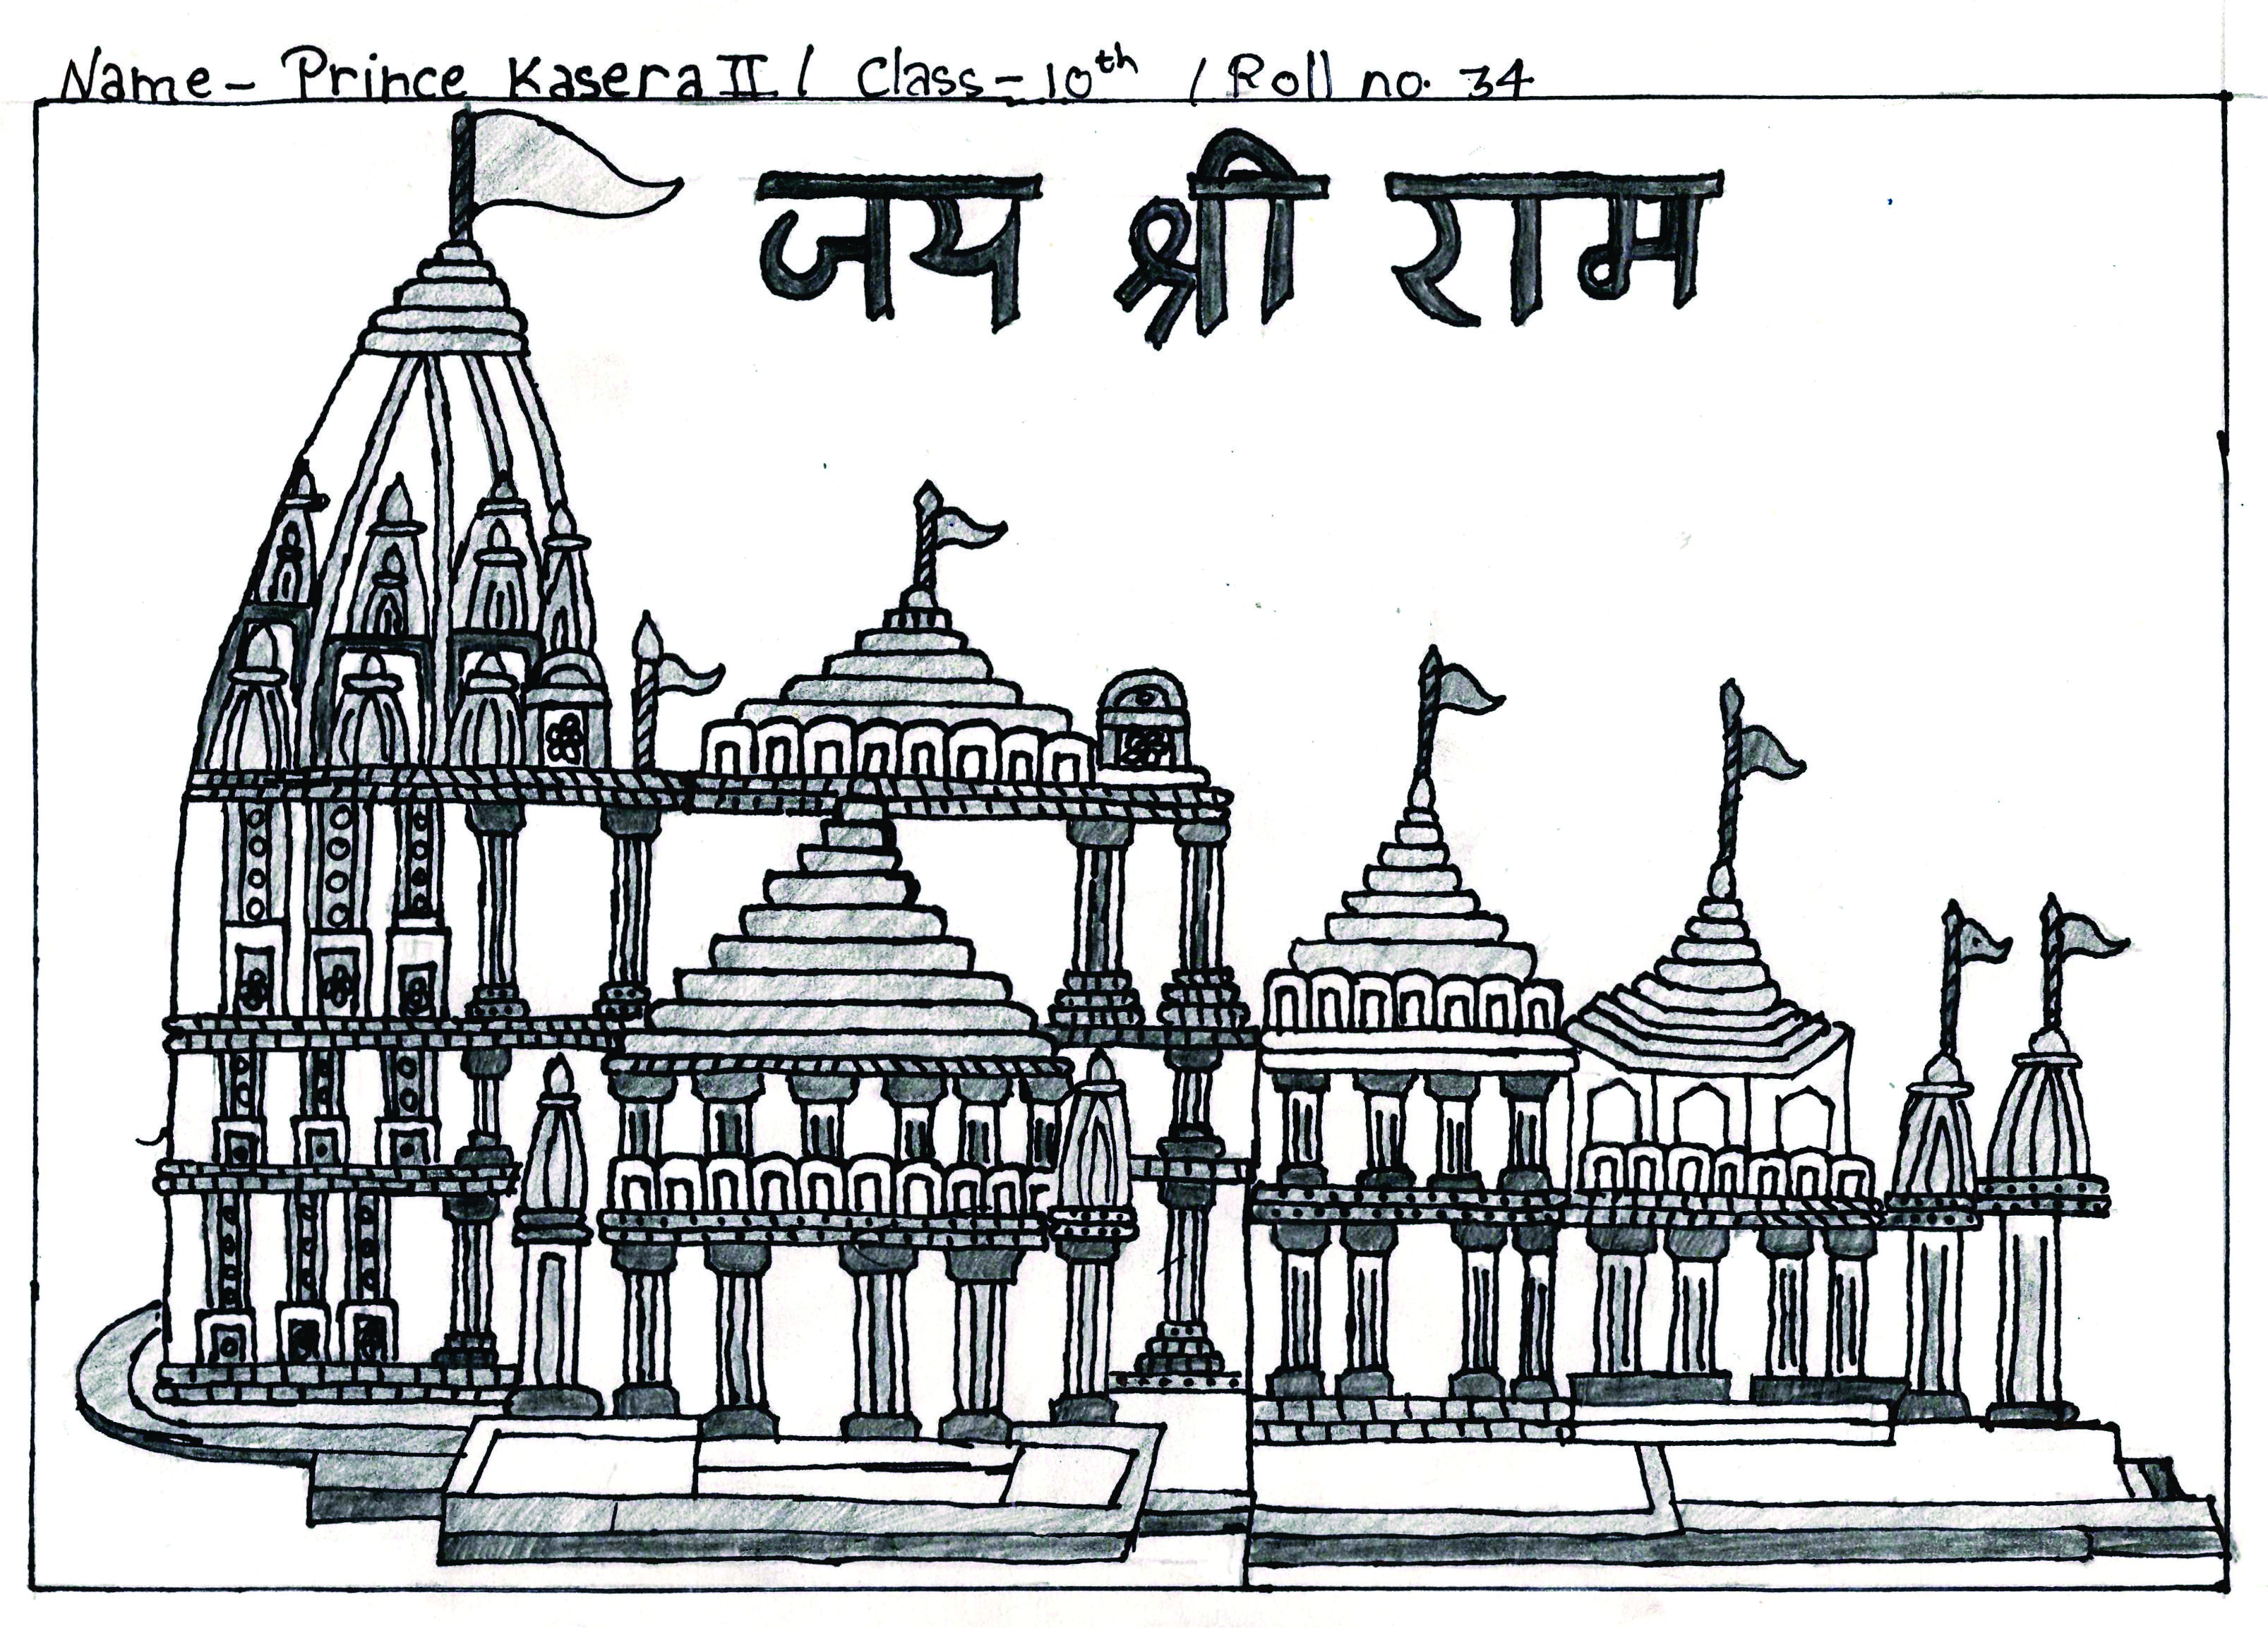 Name - Prince Kasera II / Class - 10th / Roll no. 34
जय श्री राम